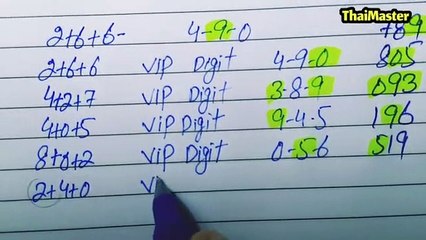 ThaiMaster
2+6+6- 4-9-0 789
2+6+6 VIP Digit 4-9-0 805
4+2+7 VIP Digit 3-8-9 093
4+0+5 VIP Digit 9-4-5 196
8+0+2 VIP Digit 0-5-6 519
2+4+0 Vi